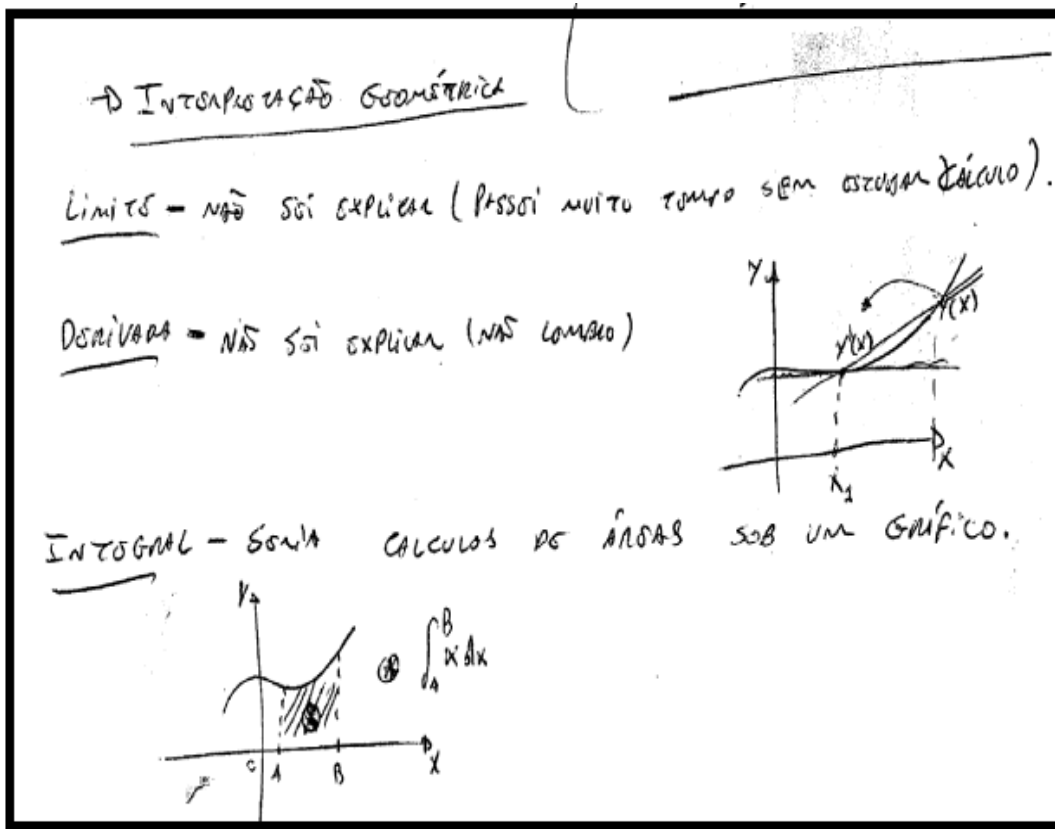 → INTERPRETAÇÃO GEOMÉTRICA
LIMITE - NÃO SEI EXPLICAR (PASSEI MUITO TEMPO SEM ESTUDAR CÁLCULO).
DERIVADA - NÃO SEI EXPLICAR (NÃO LEMBRO)
Y
y'(x)
y(x)
X1
X
INTEGRAL - SERIA CALCULOS DE ÁREAS SOB UM GRÁFICO.
Y
∫
B
A
dx
A
B
X